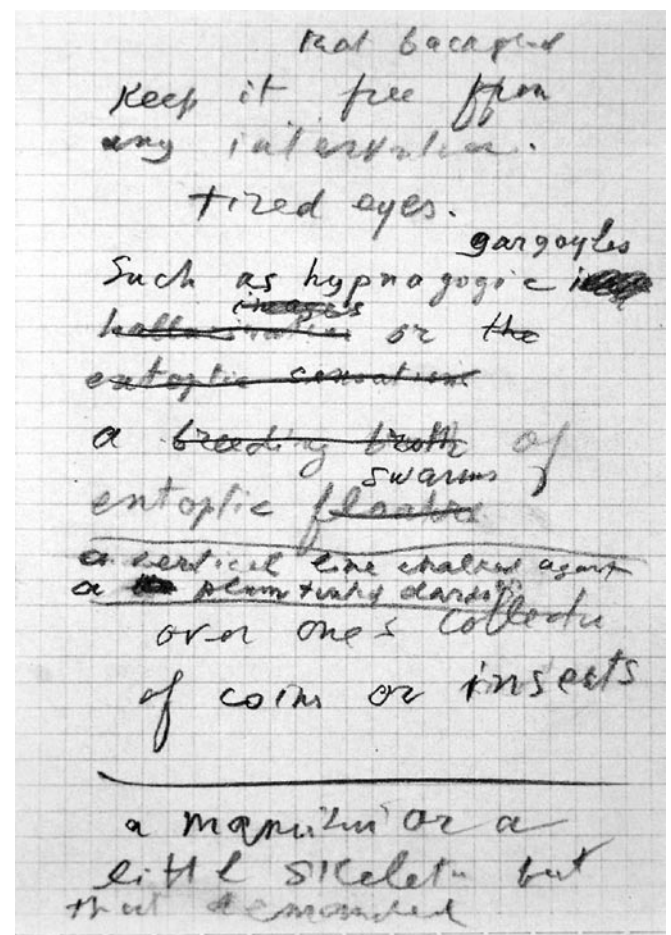 that background
Keep it free from
any intervention.
tired eyes.
gargoyles
Such as hypnagogic
images
hallucination or the
entoptic sensations
a breeding broth of
swarms
entoptic floaters
a vertical line chalked against
a plum tinged darkness
over one's collection
of coins or insects
a manikin or a
little skeleton but
that demanded